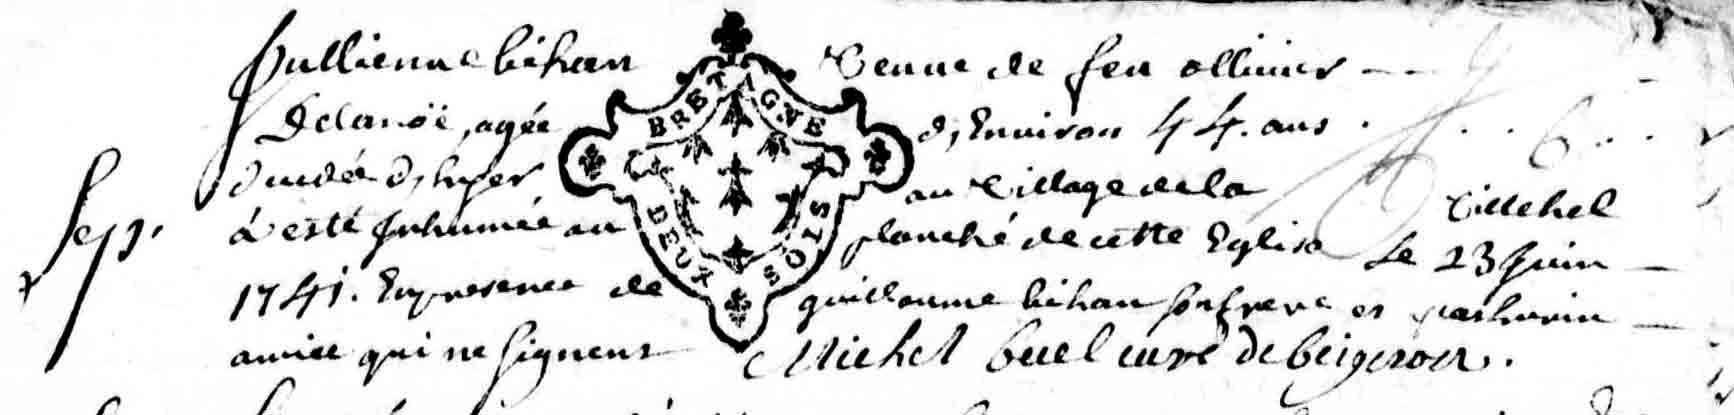 Jullienne bihan Veuve de feu ollivier
Delanoë, agée d'Environ 44. ans . 6
décédée d'hyer au village de la Villehel
à esté Inhumée au planché de cette Eglise Le 23 Juin
1741. En presence de guillaume bihan son frere et
qui ne signent Michel buel curé de
Sep.
BRETAGNE
DEUX SOLS